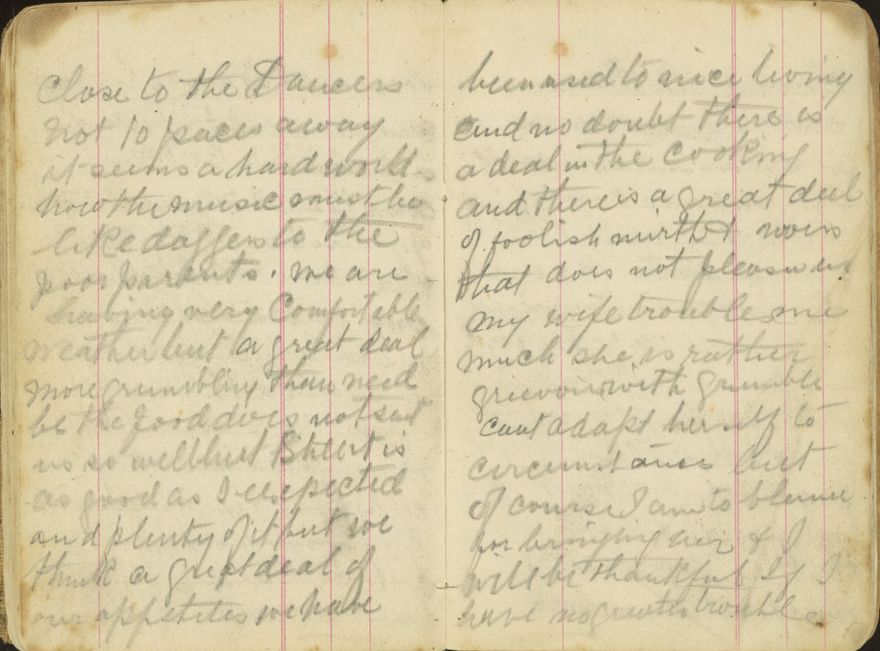 Close to the Dancers
not 10 paces away
it seems a hard world
how the music must be
like daggers to the
poor parents. we are
having very Comfortable
weather but a great deal
more grumbling than need
be the food does not suit
us so well but it is
as good as I expected
and plenty of it but we
think a great deal of
our appetites we have
been used to nice living
and no doubt there is
a deal in the cooking
and there is a great deal
of foolish mirth &
that does not please us
my wife trouble me
much she is rather
with grumble
cant adapt herself to
circumstance but
of course I am to blame
for bringing her & I
will be thankful if I
have no greater trouble